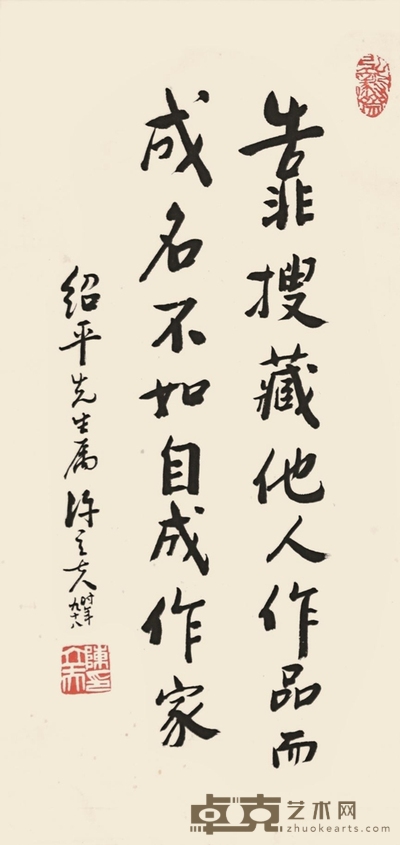 靠搜藏他人作品而
成名不如自成作家
紹平先生属 陳立夫 时年九十八
卓克艺术网
zhuokearts.com